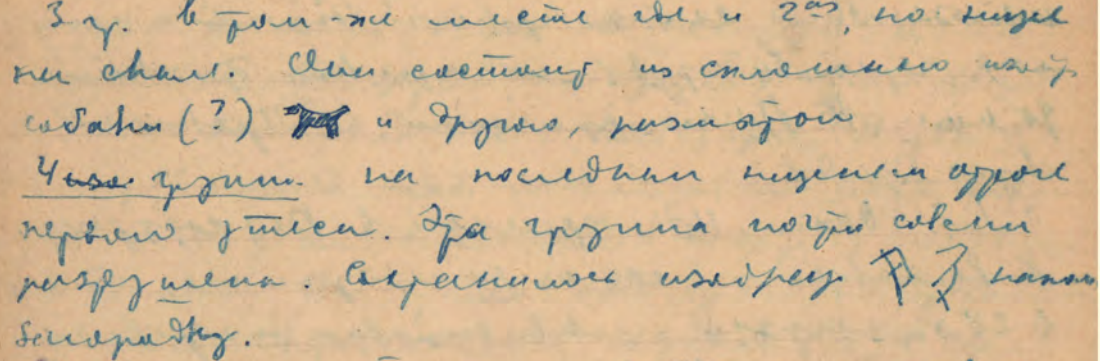 3 гр. в том-же месте где и 2ая, но ниже
на скале. Она состоит из сплошного изобр
собаки (?) и другого, размытого
4 группа на последнем нижнем отроге
первого утеса. Эта группа почти совсем
разрушена. Сохранилось изображ
загородку.